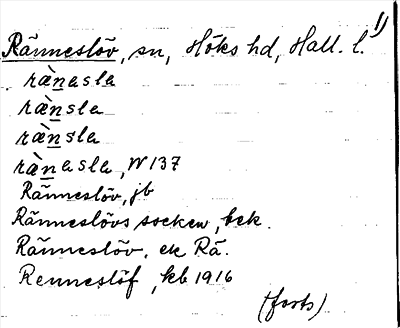 Ränneslöv, sn, Höks hd, Hall. l. 1)
rä̀nəsla
rä̀nsla
rä̀nsla
rä̀nəsla, W 137
Ränneslöv, jb
Ränneslövs socken, bek.
Ränneslöv, ek Rä.
Renneslöf, kb 1916
(forts)